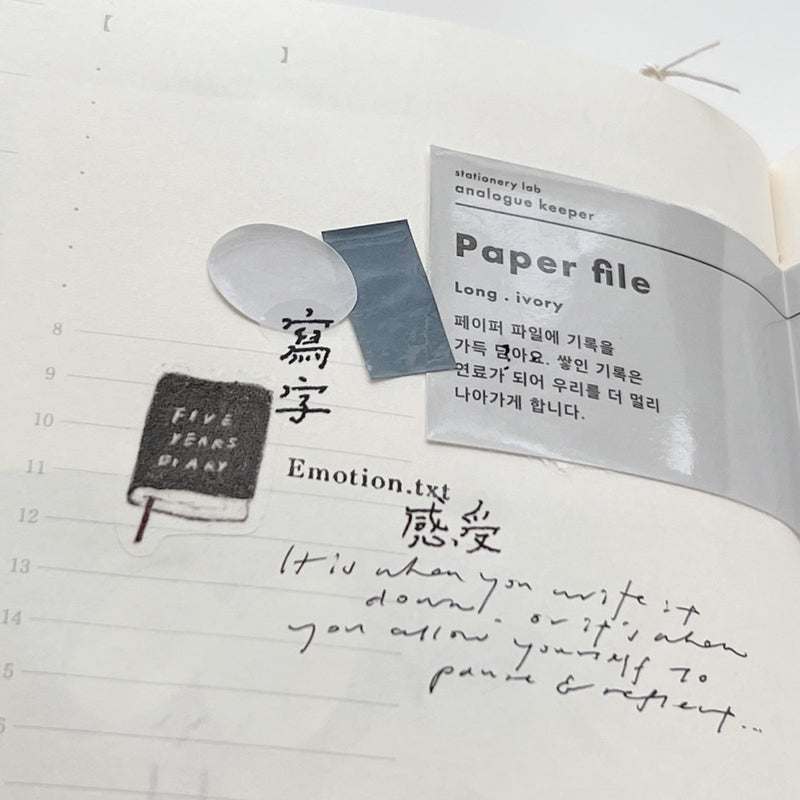 【 】
stationery lab
analogue keeper
Paper file
Long . ivory
페이퍼 파일에 기록을
가득 담아요. 쌓인 기록은
연료가 되어 우리를 더 멀리
나아가게 합니다.
寫
字
FIVE
YEARS
DIARY
Emotion.txt
感受
It is when you write it
down, or it's when
you allow yourself to
pause & reflect...
8
9
10
11
12
13
14
5